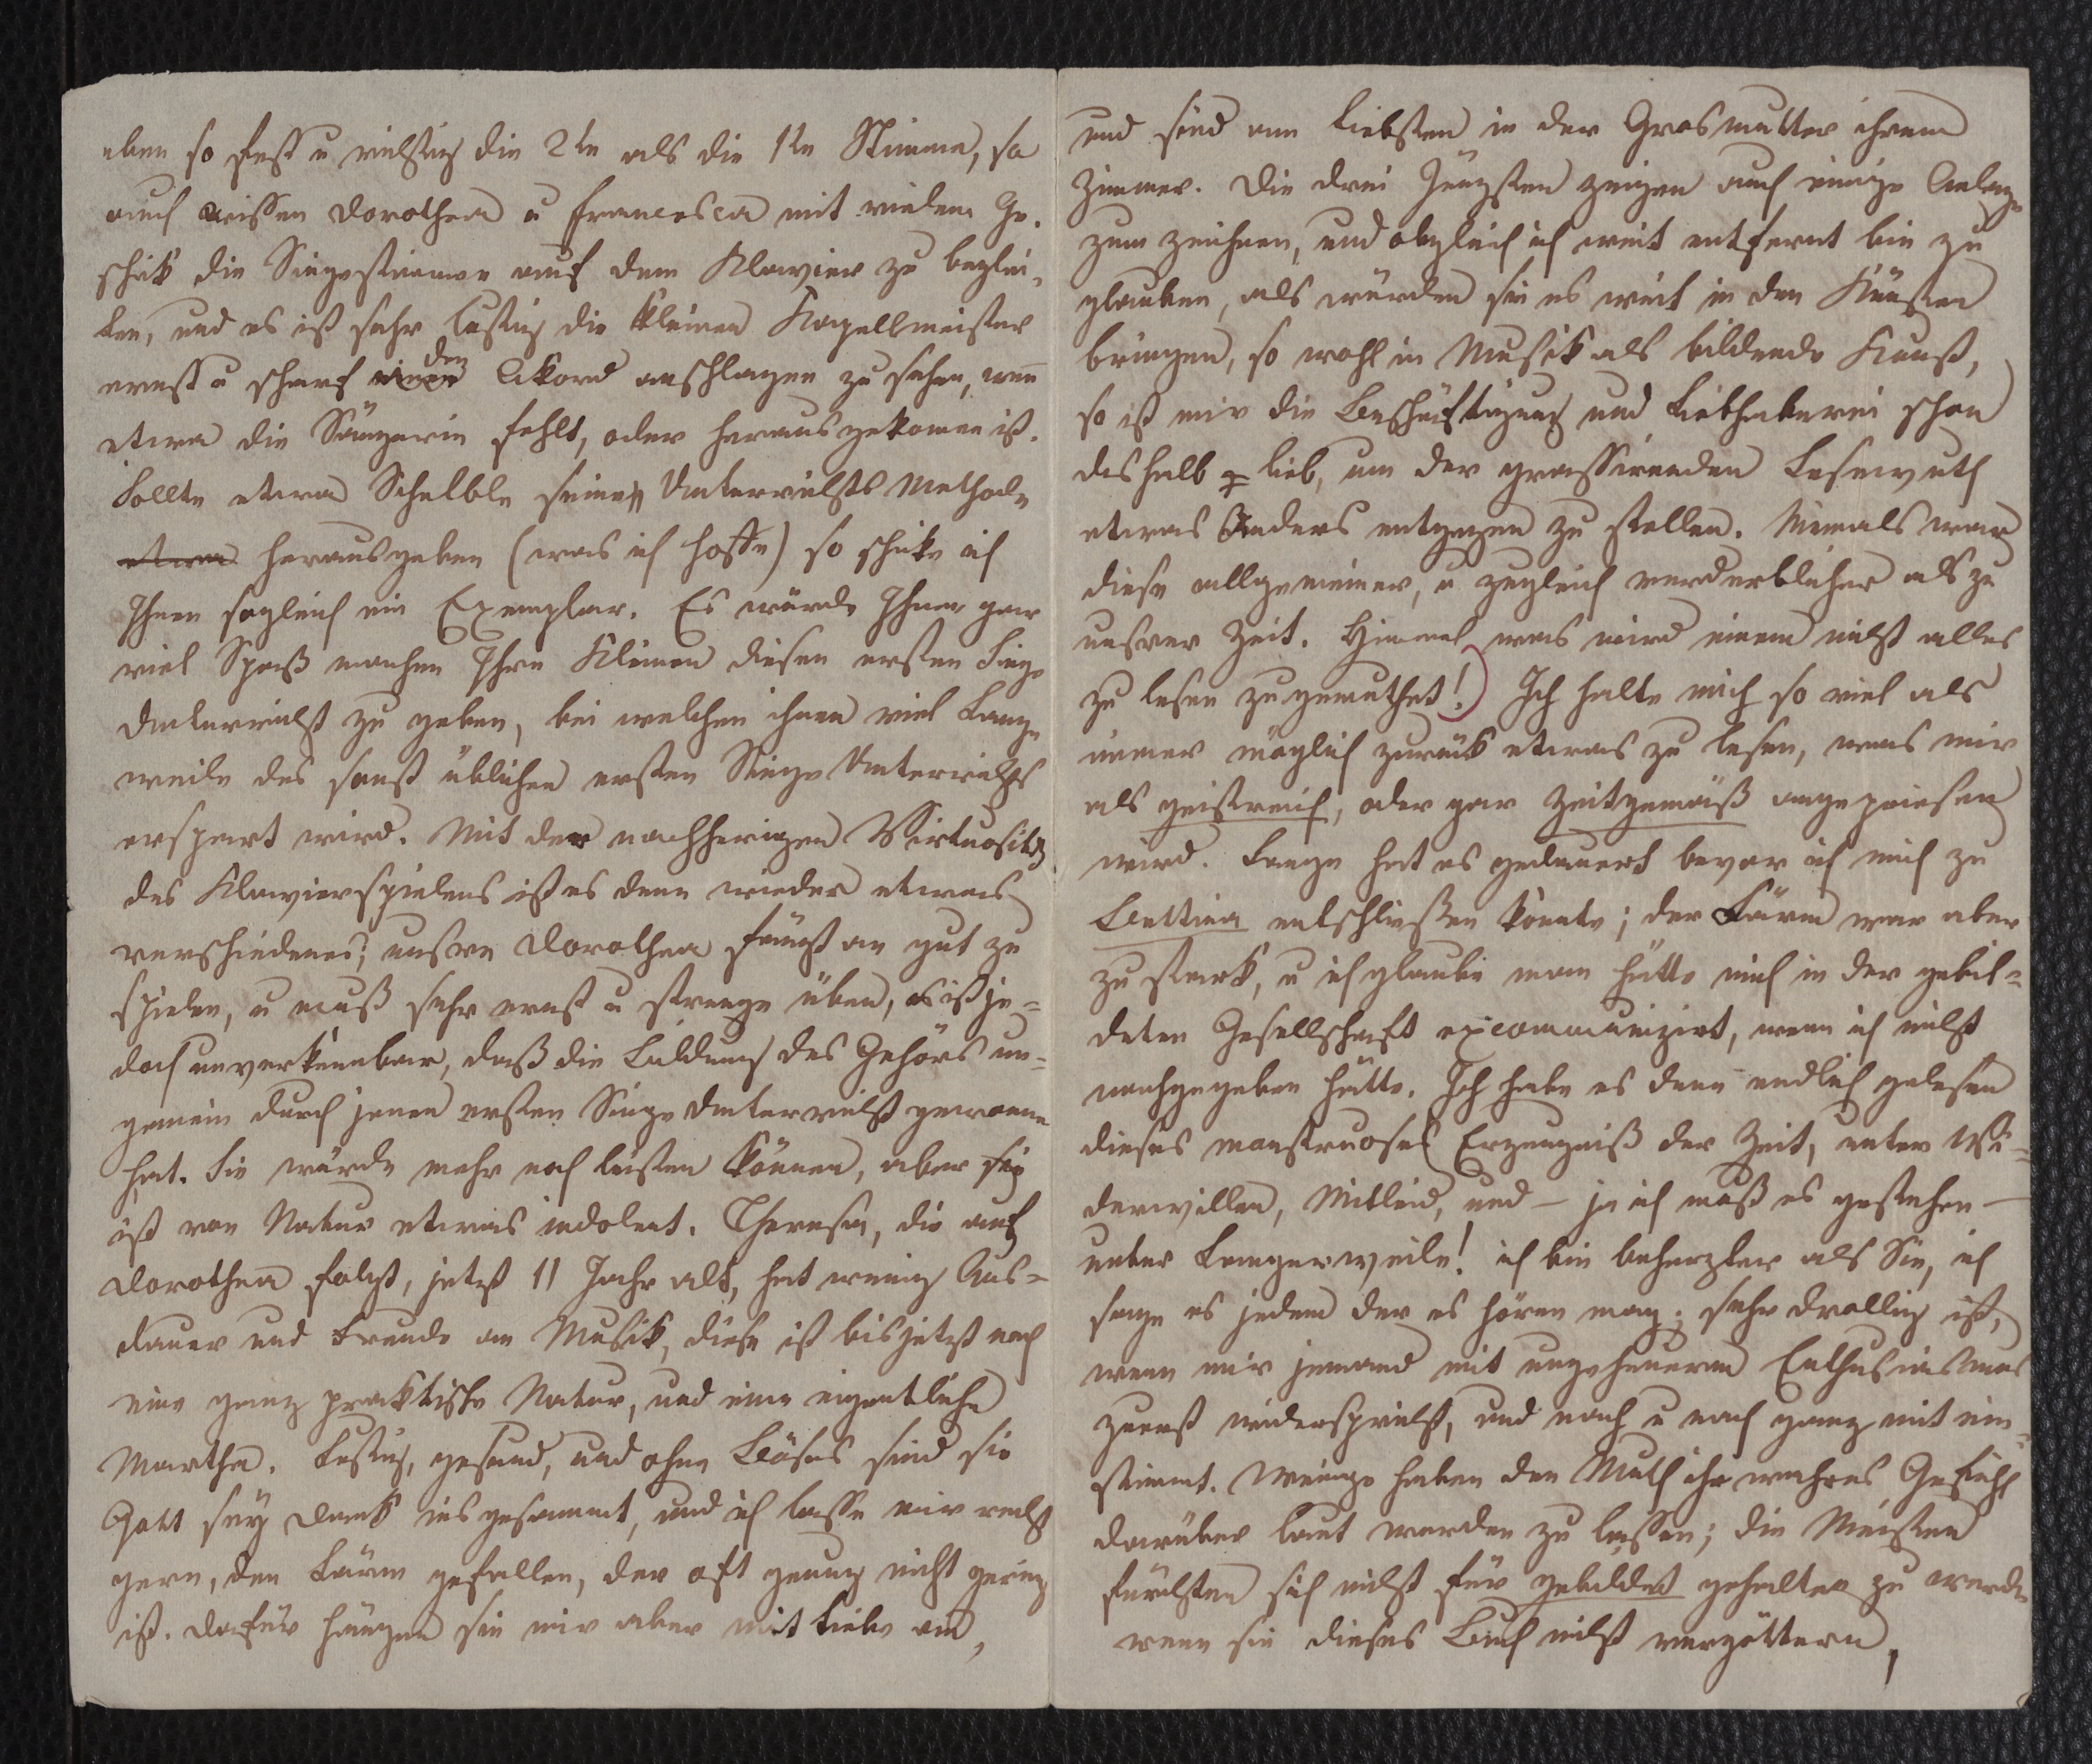 eben so fest u richtig die 2te als die 1te Stimme, so
auch wissen Dorothea u Francesca mit vielem Ge-
schik die Singestimme auf dem Klavier zu beglei-
ten, und es ist sehr lustig die kleinen Kapellmeister
ernst u scharf den Akord anschlagen zu sehen, wen̄
etwa die Sängerin fehlt, oder herausgekomen ist.
Sollte etwa Schelble seine Unterrichts Methode
etwa herausgeben (was ich hoffe) so schike ich
Ihnen sogleich ein Exemplar. Es würde Ihnen gar
viel Spaß machen Ihren Kleinen diesen ersten Singe
Unterricht zu geben, bei welchen ihnen viel Lange
weile des sonst üblichen ersten Singe Unterrichts
erspart wird. Mit der nachherigen Virtuosität
des Klavierspielens ist es denn wieder etwas
verschiedenes; unsre Dorothea fängt an gut zu
spielen, u muß sehr ernst u strenge üben, es ist je-
doch unverkennbar, daß die Bildung des Gehörs un-
gemein durch jenen ersten Singe Unterricht gewonnen
hat. Sie würde mehr noch leisten können, aber sie
ist von Natur etwas indolent. Theresa, die auf
Dorothea folgt, jetzt 11 Jahr alt, hat wenig Aus-
dauer und Freude an Musik, diese ist bis jetzt noch
eine ganz praktische Natur, und eine eigentliche
Martha. Lustig, gesund, und ohne Böses sind sie
Gott sey Dank insgesammt, und ich lasse mir recht
gern, den Lärm gefallen, der oft genug nicht gering
ist. Dafür hängen sie mir aber mit Liebe an,
und sind am liebsten in der Grosmutter ihrem
Zimmer. Die drei Jüngsten zeigen auch einige Anlage
zum zeichnen, und obgleich ich weit entfernt bin zu
glauben, als würden sie es weit in den Künsten
bringen, so wohl in Musik als bildende Kunst,
so ist mir die Beschäftigung und Liebhaberei schon
deshalb lieb, um der grassirenden Lesewuth
etwas Anders entgegen zu stellen. Niemals war
diese allgemeiner, u zugleich verderblicher als zu
unsrer Zeit. Himmel was wird einem nicht alles
zu lesen zugemuthet! Ich halte mich so viel als
immer möglich zurück etwas zu lesen, was mir
als geistreich, oder gar zeitgemäß angepriesen
wird. Lange hat es gedauert bevor ich mich zu
Bettina entschließen konnte; der Lärm war aber
zu stark, u ich glaube man hätte mich in der gebil-
deten Gesellschaft excommunizirt, wenn ich nicht
nachgegeben hätte. Ich habe es denn endlich gelesen
dieses monstruoses Erzeugniß der Zeit, unter Wi-
derwillen, Mitleid, und – ja ich muß es gestehen –
unter Langerweile! ich bin beherzter als Sie, ich
sage es jedem der es hören mag; sehr drollig ist,
wenn mir jemand mit ungeheuerm Enthusiasmus
zuerst widerspricht, und nach u nach ganz mit ein-
stimmt. Wenige haben den Muth ihr wahres Gefühl
darüber laut werden zu lassen; die Meisten
fürchten sich nicht für gebildet gehalten zu werden
wenn sie dieses Buch nicht vergöttern,